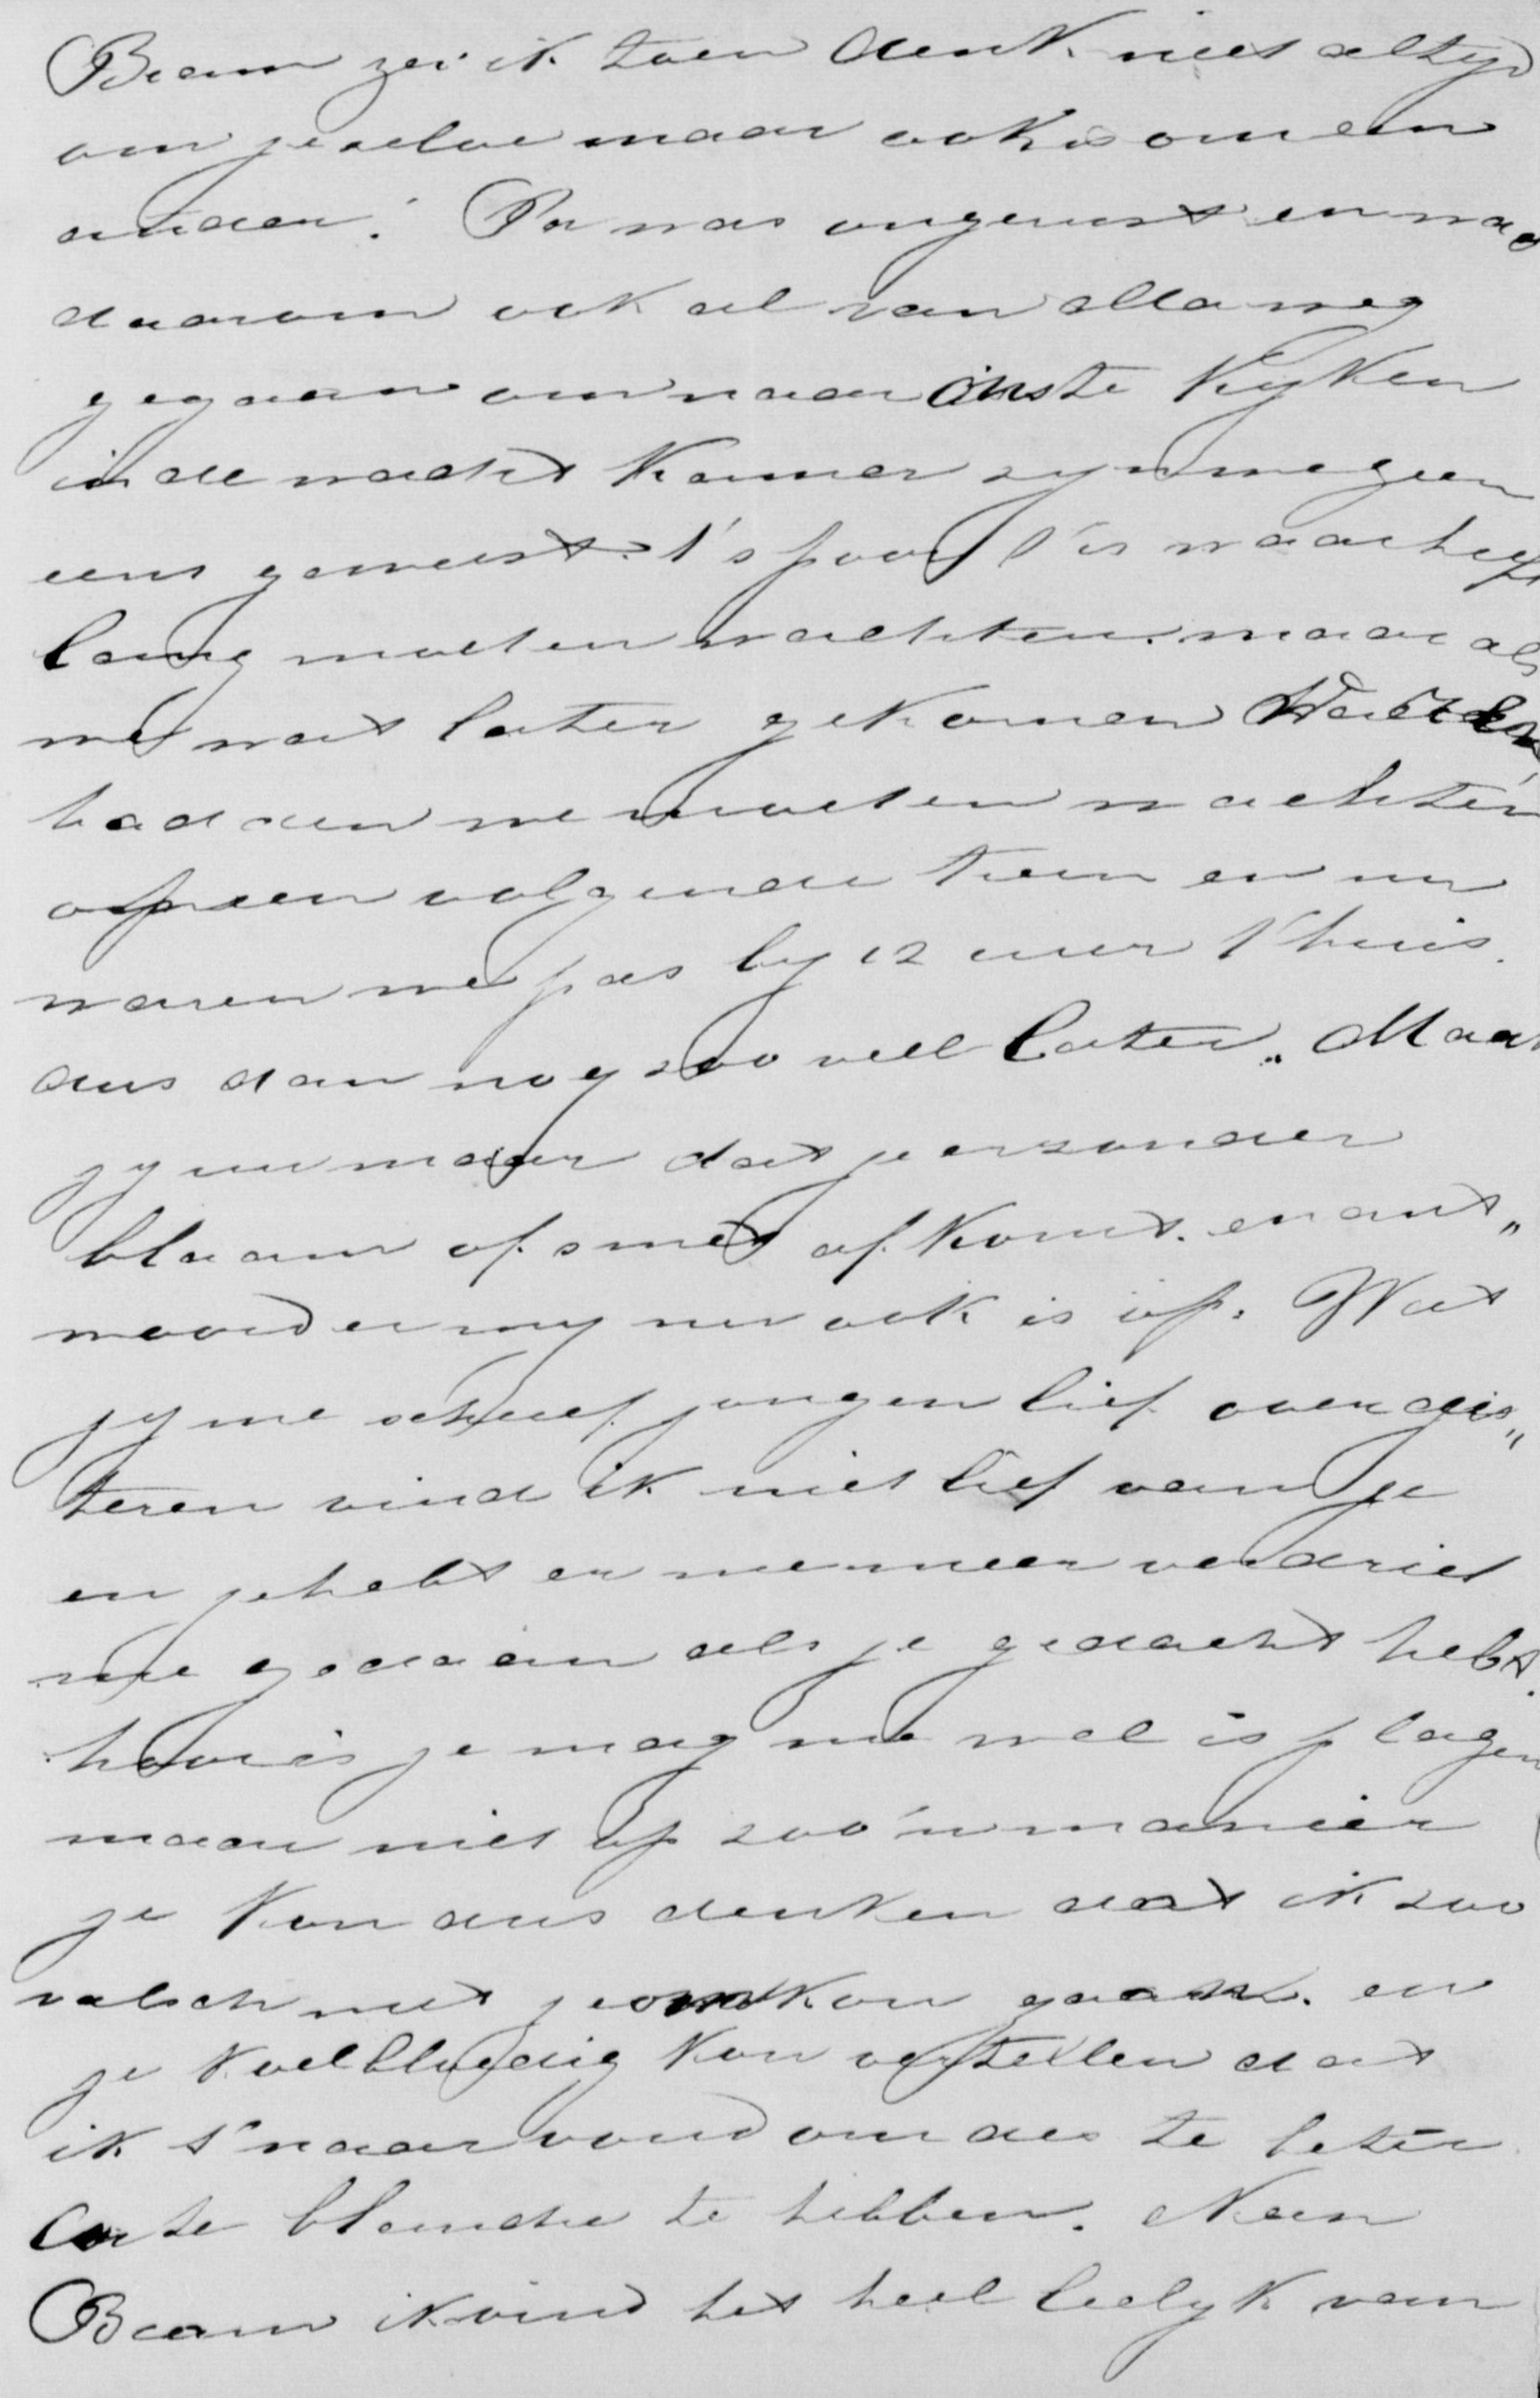 Bram zei ik toen denk niet altyd
om jeselve maar ook is om een
ander. Pa was ongerust en was
daarom ook al van alla weg
gegaan om naar ons te kyken
in de wacht Kamer zyn we geen
eens geweest. t'spoor t'is waar heeft
lang moeten wachten. maar als
we wat later gekomen Waren
hadden we moeten wachten
op een volgende trein en nu
waren we pas by 12 uur t'huis.
dus dan nog zoo veel later. Maar
jy nu maar dat je er zonder
blaam of smet af komt. en ant„
woord er my nu ook is op. Wat
jy me schreef jongen lief over gis„
teren vind ik niet lief van je
en je hebt er me meer verdriet
mee gedaan als je gedacht hebt.
hoor is je mag me wel is plagen
maar niet op zoo'n manier
je kon dus denken dat ik zoo
valsch met je om kon gaan. en
je koelbloedig kon vertellen dat
ik t'naar vond om des te beter
Carte blanche te hebben. Neen
Bram ik vind het heel leelyk van